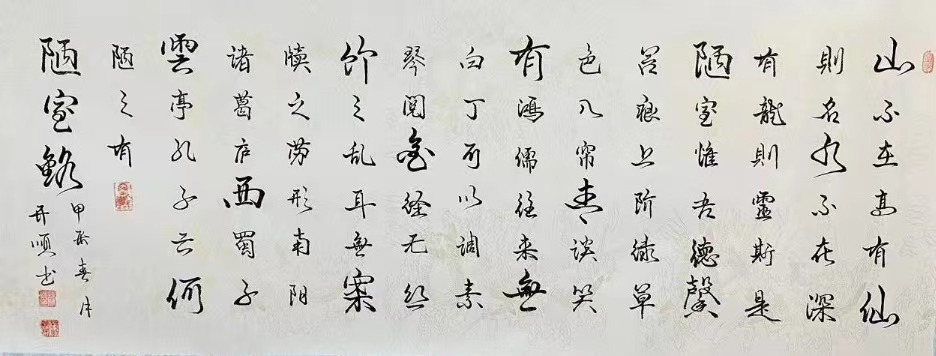 山不在高有仙
則名水不在深
有龍則靈斯是
陋室惟吾德馨
苔痕上阶绿草
色入帘青谈笑
有鴻儒往来無
白丁可以调素
琴阅金经无丝
竹之乱耳無案
牍之劳形南阳
诸葛庐西蜀子
雲亭孔子云何
陋之有
陋室銘
甲辰春月
开順书